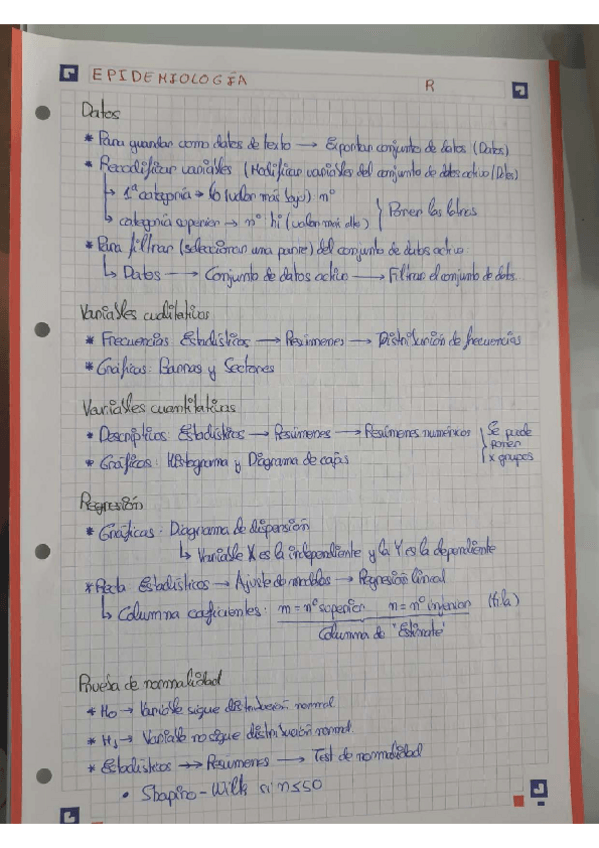 EPIDEMIOLOGÍA R
Datos
* Para guardar como datos de texto → Exportar conjunto de datos (Datos)
* Recodificar variables (Modificar variables del conjunto de datos activo (Datos)
↳ 1ª categoría → lo (valor más bajo) nº
↳ categoría superior → nº: hi (valor más alto) } Poner las letras
* Para filtrar (seleccionar una parte) del conjunto de datos activo:
↳ Datos → Conjunto de datos activo → Filtrar el conjunto de datos.
Variables cualitativas
* Frecuencias: Estadísticos → Resúmenes → Distribución de frecuencias
* Gráficas: Barras y Sectores
Variables cuantitativas
* Descriptivos: Estadísticos → Resúmenes → Resúmenes numéricos } Se puede poner x grupos
* Gráficos: Histograma y Diagrama de cajas
Regresión
* Gráficas: Diagrama de dispersión
↳ Variable X es la independiente y la Y es la dependiente
* Recta: Estadísticos → Ajuste de modelos → Regresión lineal
↳ Columna coeficientes: m = nº superior n = nº inferior (fila)
Columna de "Estimate"
Prueba de normalidad
* H₀ → Variable sigue distribución normal.
* H₁ → Variable no sigue distribución normal.
* Estadísticos → Resúmenes → Test de normalidad
• Shapiro-Wilk si n≤50